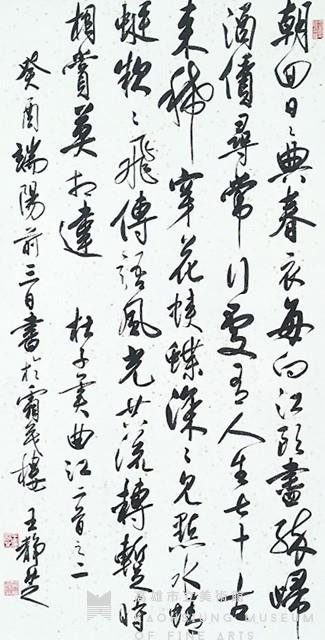 朝回日〻典春衣每向江頭盡醉歸
酒債尋常行處有人生七十古
來稀穿花蛺蝶深〻見點水蜻
蜓款〻飛傳語風光共流轉暫時
相賞莫相違 杜子美曲江二首之二
癸酉端陽前三日書於霜茂樓 王靜芝
高雄市立美術館
KAOHSIUNG MUSEUM
OF FINE ARTS